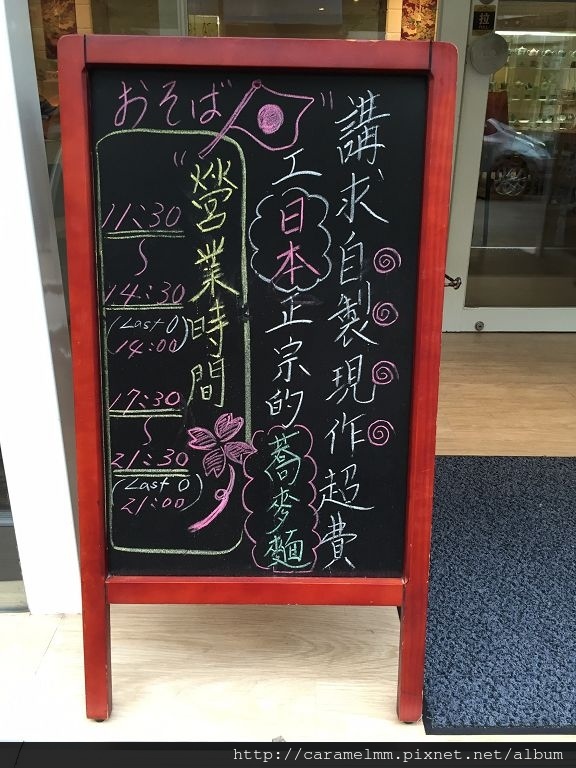 おそば
講求自製現作超費
工日本正宗的蕎麥麵
"營業時間"
11:30
~
14:30
(Last O
14:00)
17:30
~
21:30
(Last O
21:00)
拉
http://caramelmm.pixnet.net/album